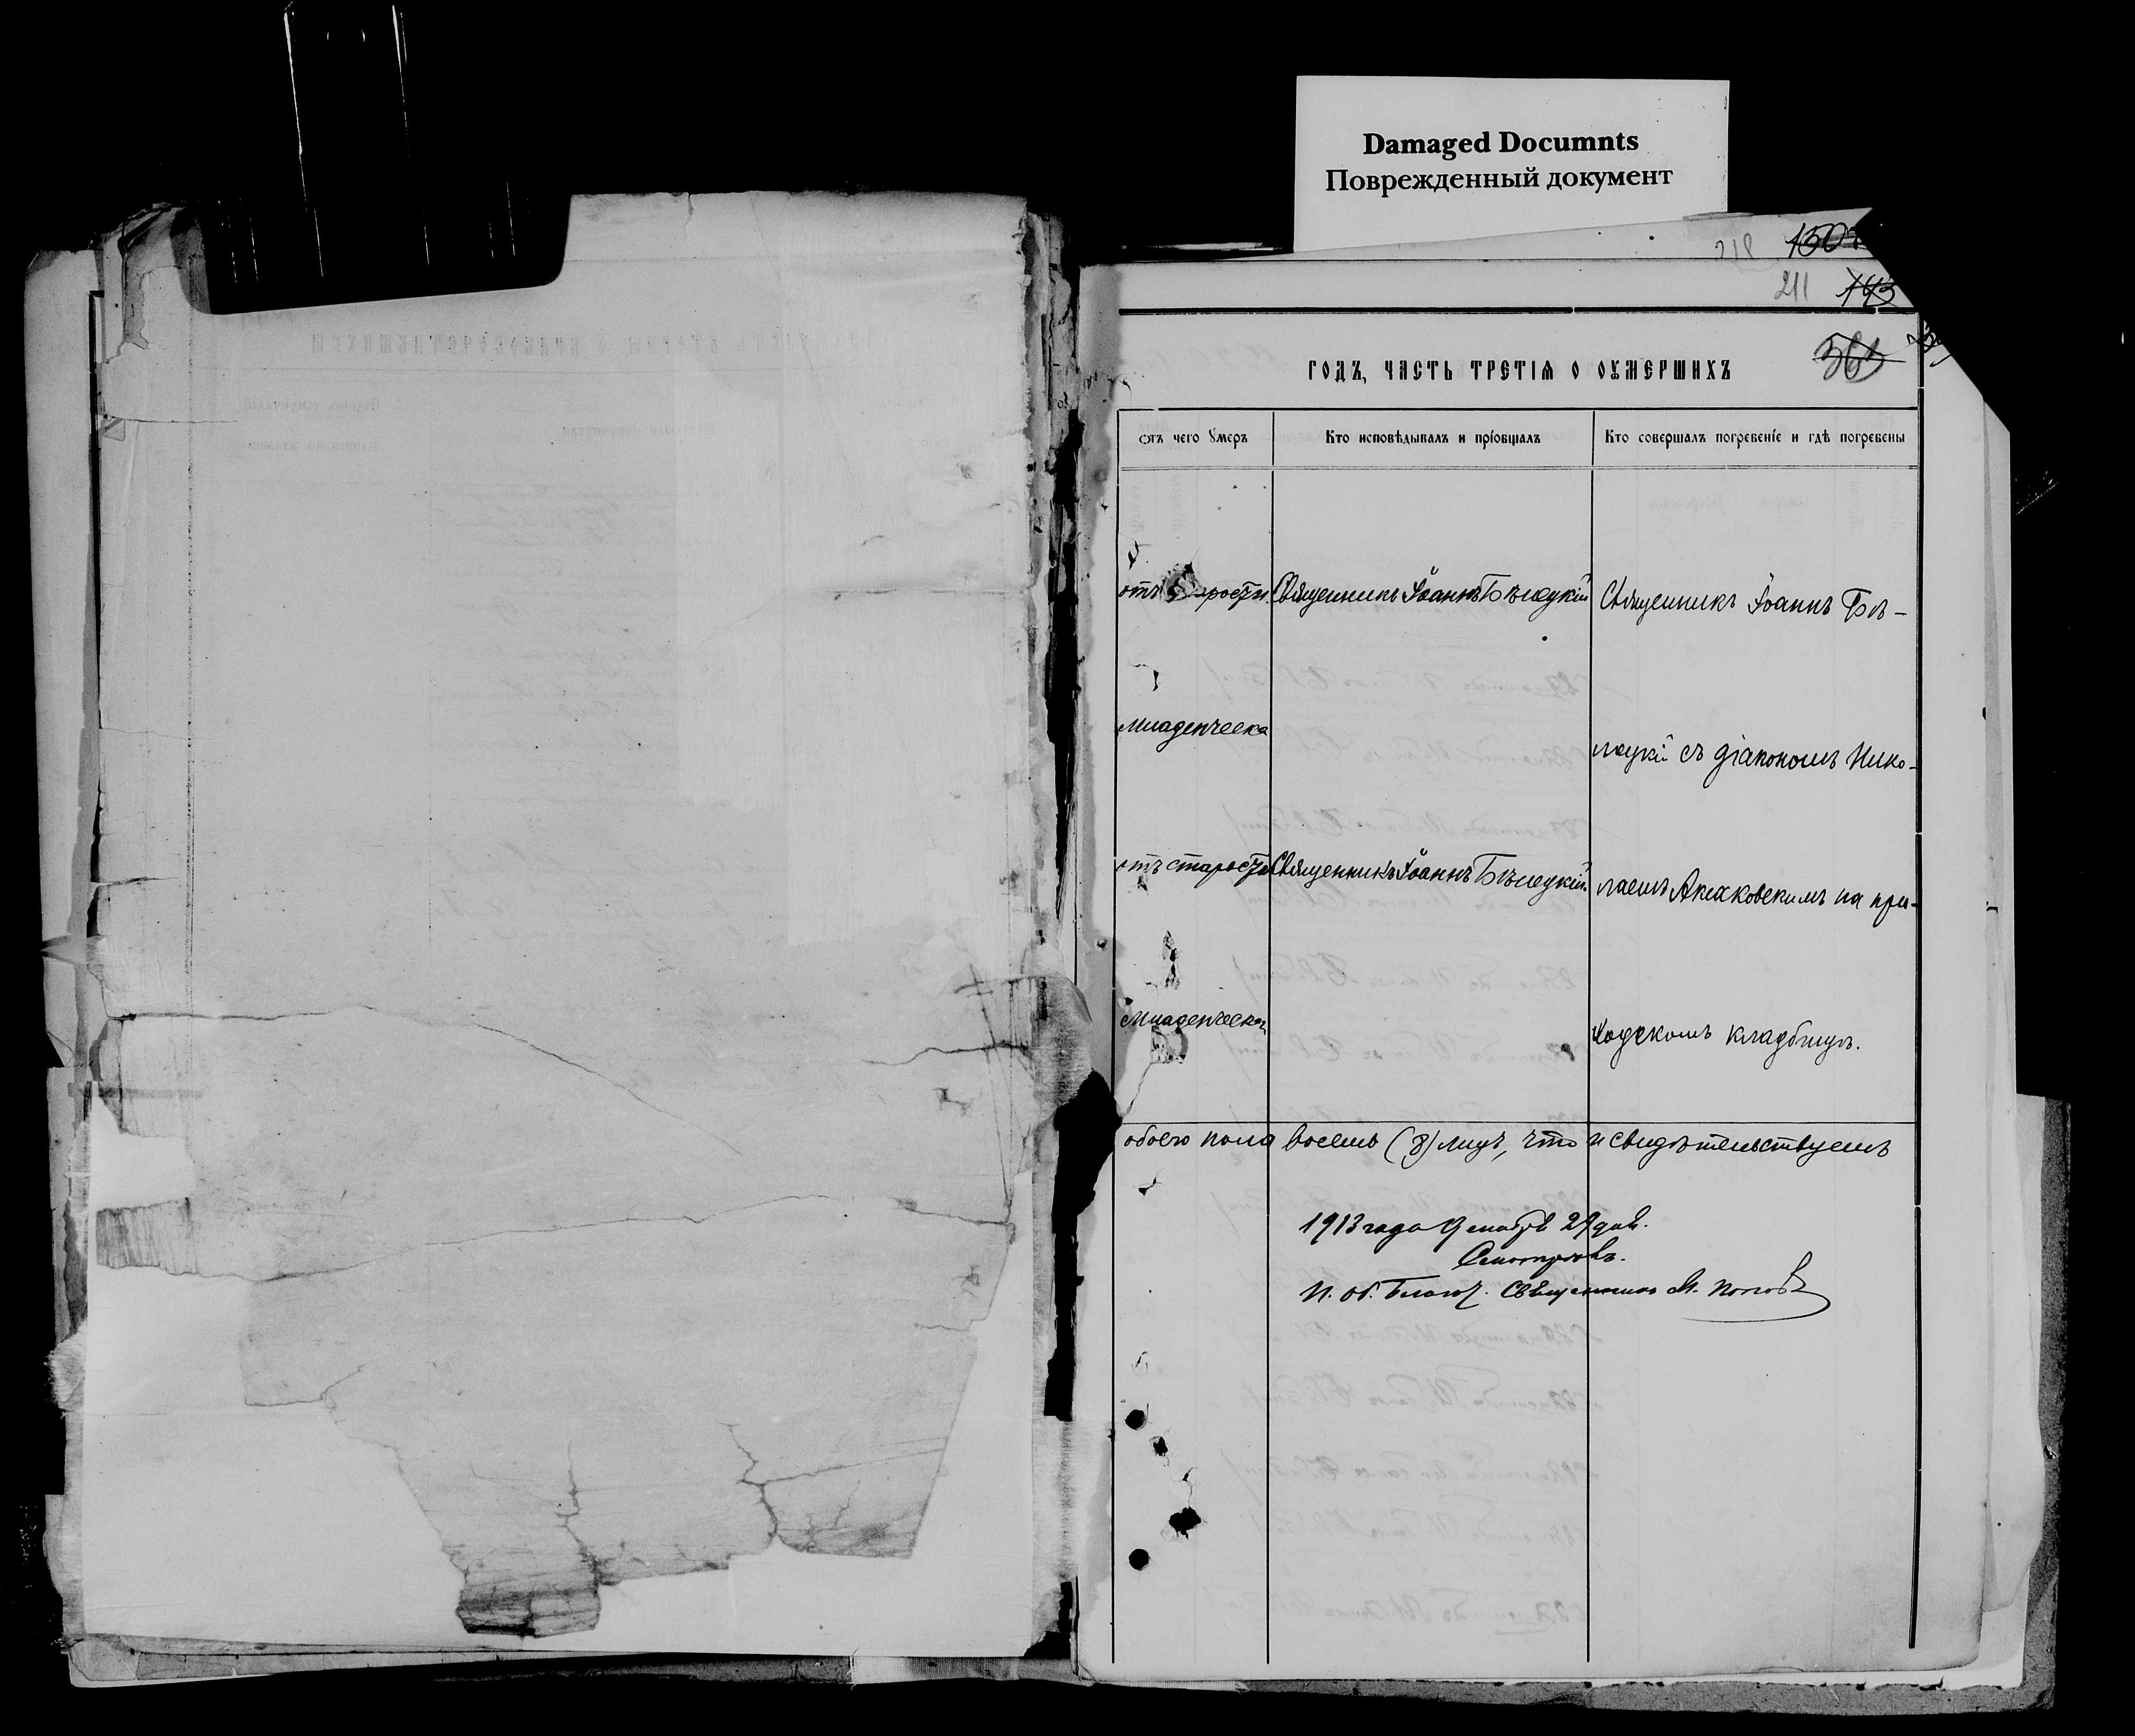 Damaged Documnts
Поврежденный документ
1507
211 143
годъ, часть третія о оумершихъ
363
отъ чего умеръ
Кто исповѣдывалъ и пріобщалъ
Кто совершалъ погребеніе и гдѣ погребены
отъ старости
Священникъ Іоаннъ Бѣлецкій
Священникъ Іоаннъ Бѣ-
Младенческа
лецкій съ діакономъ Нико-
отъ старости
Священникъ Іоаннъ Бѣлецкій
лаемъ Аксаковскимъ на при-
Младенческа
ходскомъ кладбищѣ.
обоего пола восемь (8) лицъ, что и свидѣтельствуемъ
1913 года Декабря 29 дня.
Смотрѣлъ.
И. об. Благоч. Священникъ М. Поповъ